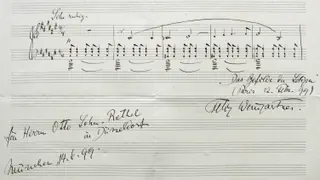 Sehr ruhig.
Das Gefilde der Seligen
(Paris 12. 99)
Felix Weingartner.
für Herrn Otto Sohn-Rethel
in Düsseldorf
München 14.6.99.